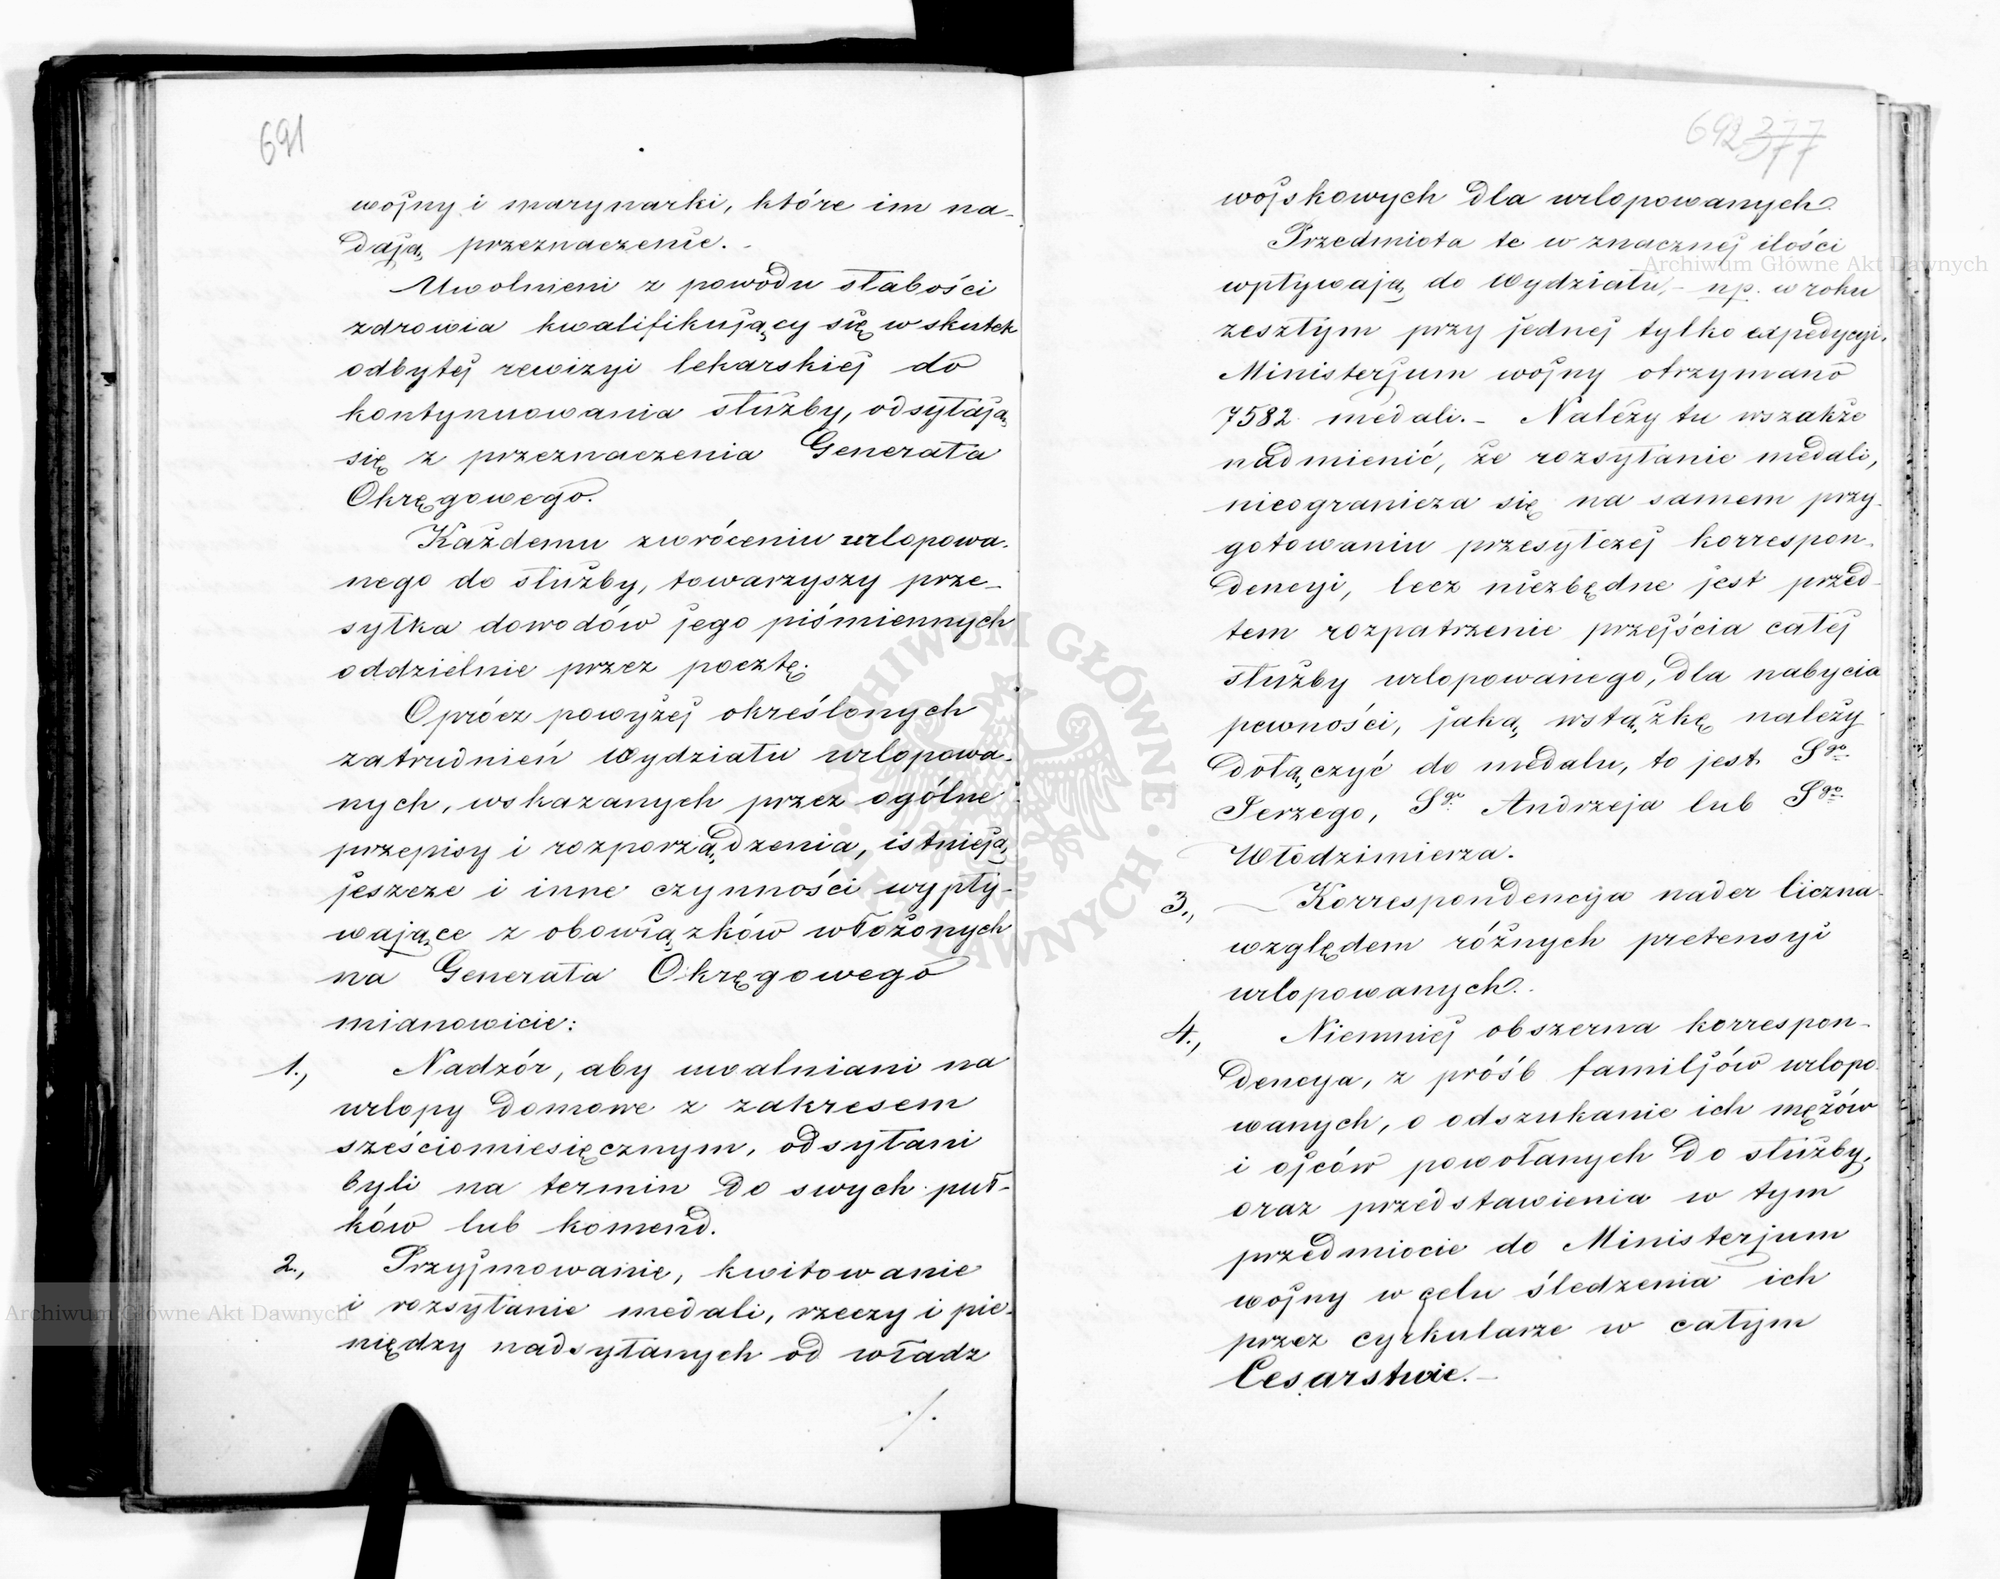 691
wojny i marynarki, które im na-
dają przeznaczenie.
Uwolnieni z powodu słabości
zdrowia kwalifikujący się w skutek
odbytej rewizyi lekarskiej do
kontynuowania służby, odsyłają
się z przeznaczenia Generała
Okręgowego.
Każdemu zwróceniu urlopowa-
nego do służby, towarzyszy prze-
syłka dowodów jego piśmiennych
oddzielnie przez pocztę.
Oprócz powyżej określonych
zatrudnień Wydziału urlopowa-
nych, wskazanych przez ogólne
przepisy i rozporządzenia, istnieją
jeszcze i inne czynności wypły-
wające z obowiązków włożonych
na Generała Okręgowego
mianowicie:
1., Nadzór, aby uwalniani na
urlopy domowe z zakresem
sześciomiesięcznym, odsyłani
byli na termin do swych puł-
ków lub komend.
2., Przyjmowanie, kwitowanie
i rozsyłanie medali, rzeczy i pie-
niędzy nadsyłanych od władz
./.
692 377
wojskowych dla urlopowanych.
Przedmiota te w znacznej ilości
wpływają do Wydziału, - np. w roku
zeszłym przy jednej tylko expedycyi.
Ministerjum wojny otrzymano
7582 medali. - Należy tu wszakże
nadmienić, że rozsyłanie medali,
nieogranicza się na samem przy-
gotowaniu przesyłczej korrespon-
dencyi, lecz niezbędne jest przed-
tem rozpatrzenie przejścia całej
służby urlopowanego, dla nabycia
pewności, jaką wstążkę należy
dołączyć do medalu, to jest Sgo
Jerzego, Sgo Andrzeja lub Sgo
Włodzimierza.
3., — Korrespondencija nader liczna
względem różnych pretensyi
urlopowanych.
4., Niemniej obszerna korrespon-
dencya, z próśb familjów urlopo
wanych, o odszukanie ich mężów
i ojców powołanych do służby,
oraz przedstawienia w tym
przedmiocie do Ministerjum
wojny w celu śledzenia ich
przez cyrkularze w całym
Cesarstwie. —
Archiwum Główne Akt Dawnych
Archiwum Główne Akt Dawnych
ARCHIWUM GŁÓWNE AKT DAWNYCH